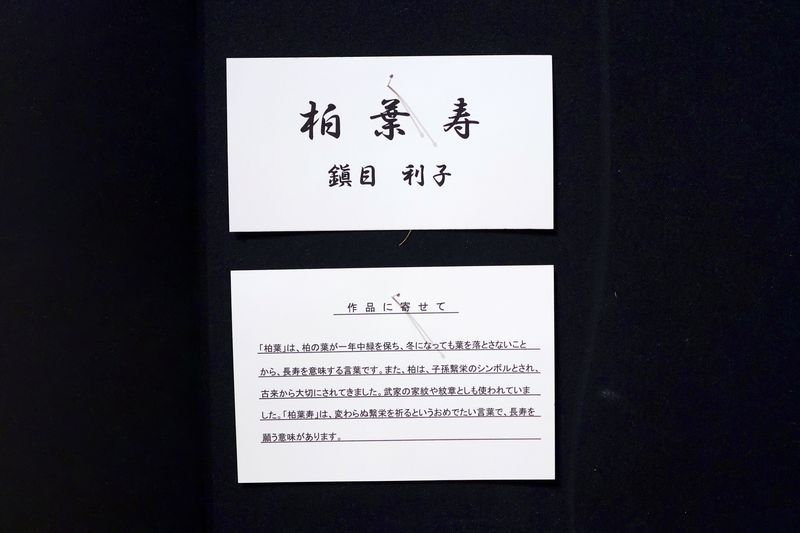 柏葉寿
鎭目 利子
作品に寄せて
「柏葉」は、柏の葉が一年中緑を保ち、冬になっても葉を落とさないこと
から、長寿を意味する言葉です。また、柏は、子孫繫栄のシンボルとされ、
古来から大切にされてきました。武家の家紋や紋章としも使われていま
した。「柏葉寿」は、変わらぬ繫栄を祈るというおめでたい言葉で、長寿を
願う意味があります。